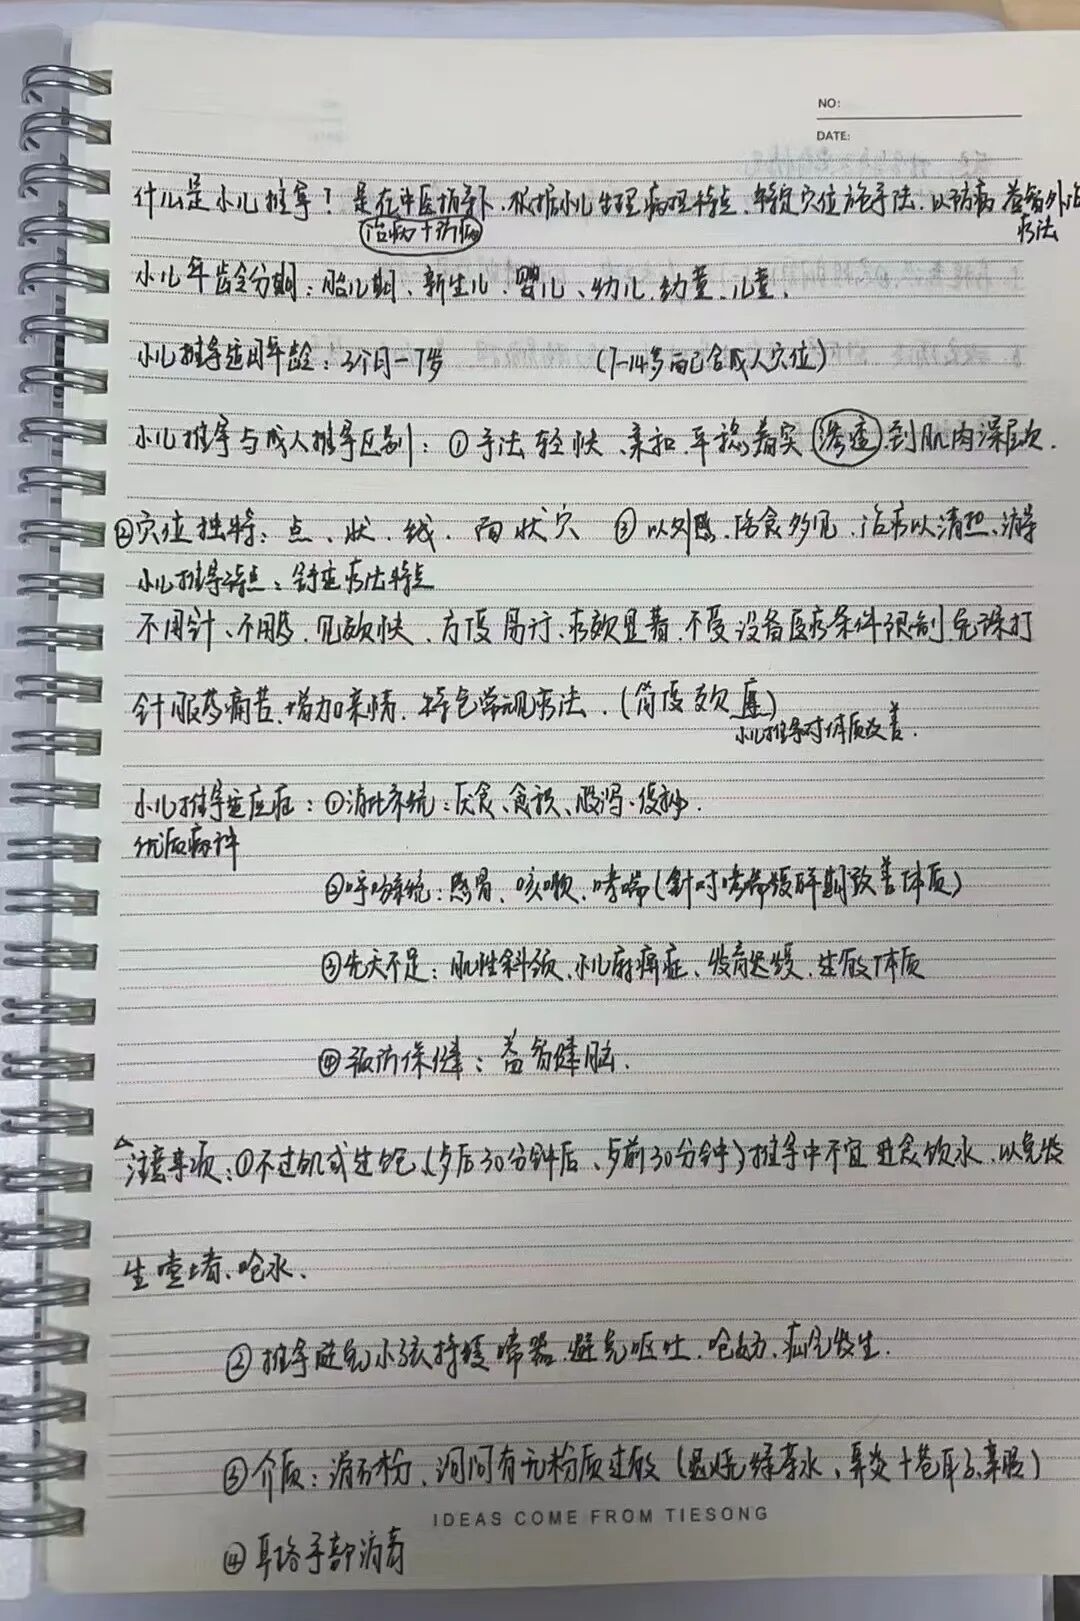 NO:
DATE:
什么是小儿推拿？是在中医指导下、根据小儿生理病理特点、特定穴位施手法、以防病 益智外治
治病+防病 疗法
小儿年龄分期：胎儿期、新生儿、婴儿、幼儿、幼童、儿童、
小儿推拿适用年龄：3个月-7岁 (7-14岁 配合成人穴位)
小儿推拿与成人推拿区别：①手法轻快、亲和、平稳着实 渗透 到肌肉深层次.
②穴位独特：点、状、线、面状穴 ③以外感、伤食多见、治病以清热、消导
小儿推拿特点：舒适疗法特点
不用针、不用药、见效快、方便易行、疗效显著、不受设备医疗条件限制 免除打
针服药痛苦、增加亲情、特色常规疗法、(简便效廉)
小儿推拿对体质改善.
小儿推拿适应症：①消化系统：厌食、食积、腹泻、便秘.
优质病种
②呼吸系统：感冒、咳嗽、哮喘(针对哮喘缓解期改善体质)
③先天不足：肌性斜颈、小儿麻痹症、发育迟缓、过敏体质
④预防保健：益智健脑.
△注意事项：①不过饥或过饱、(后30分钟后、前30分钟)推拿中不宜进食饮水、以免发
生噎堵、呛水、
②推拿避免小孩持续啼哭、避免呕吐、呛奶、发生.
③介质：滑石粉、询问有无粉质过敏 (退烧绿茶水、鼻炎+苍耳子)
IDEAS COME FROM TIESONG
④手部消毒